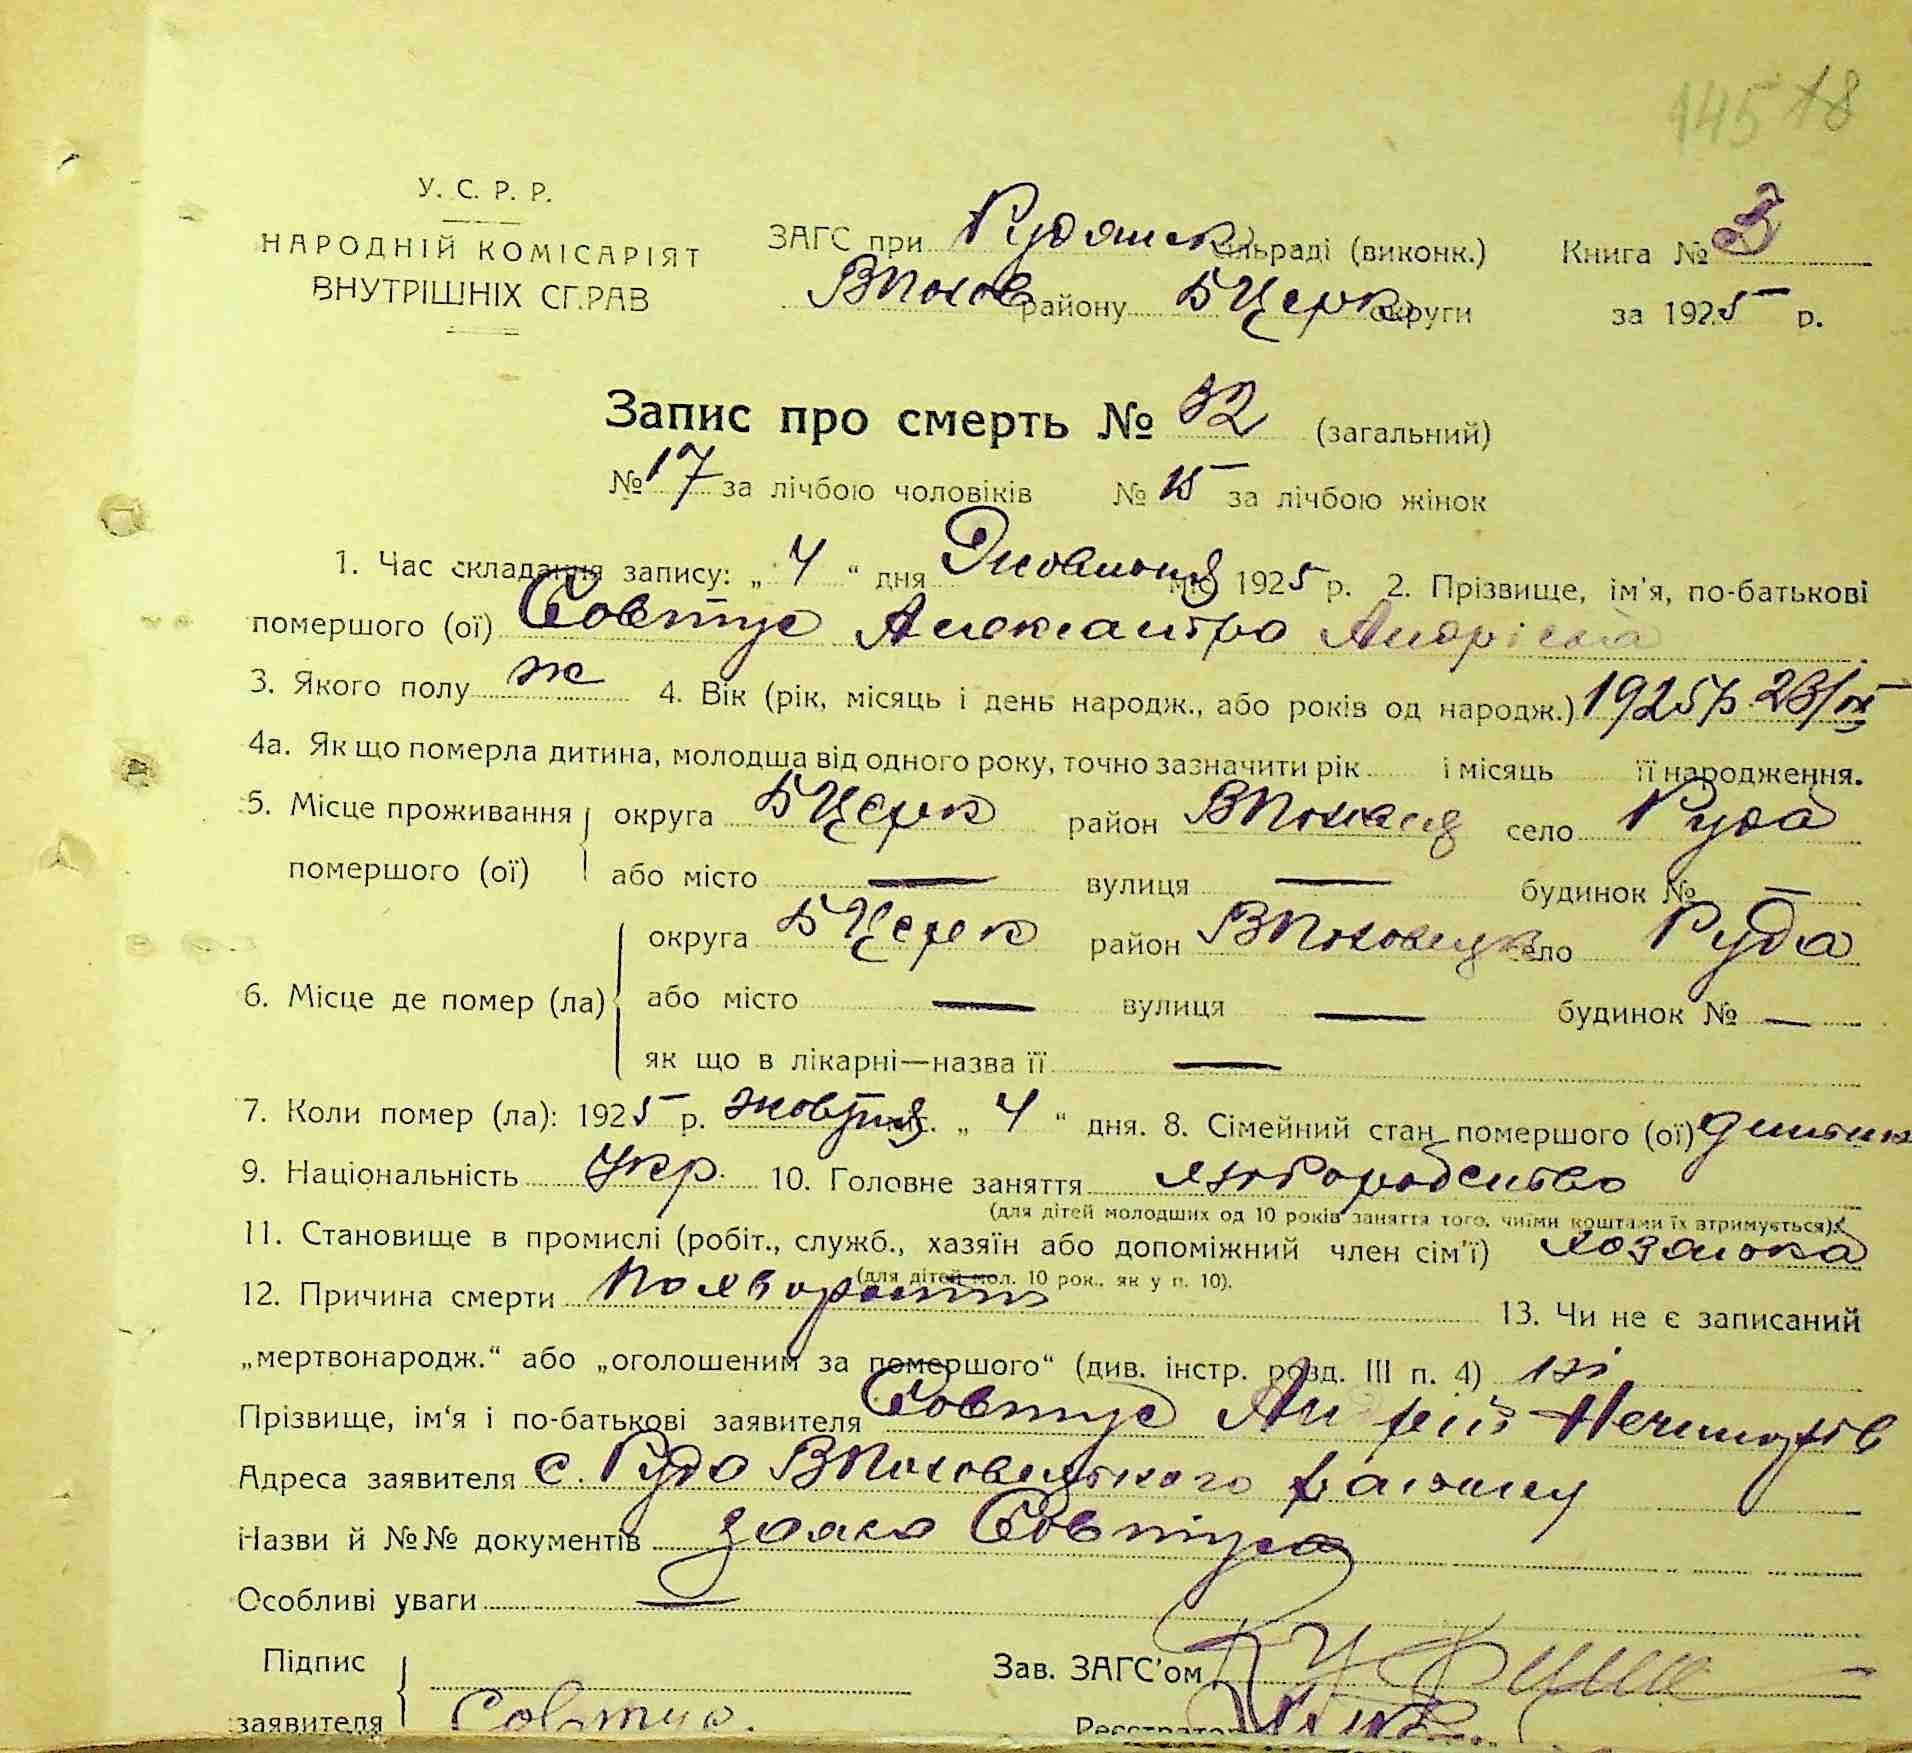 145 18
У. С. Р. Р.
НАРОДНІЙ КОМІСАРІЯТ
ВНУТРІШНІХ СПРАВ
ЗАГС при Рудянск сільраді (виконк.) Книга № 3
ВПолов району БЦерк округи за 1925 р.
Запис про смерть № 32 (загальний)
№ 17 за лічбою чоловіків № 15 за лічбою жінок
1. Час складання запису: „ 4 “ дня Жовтня міс. 1925 р. 2. Прізвище, ім'я, по-батькові
помершого (ої) Совтус Александра Андріева
3. Якого полу ж 4. Вік (рік, місяць і день народж., або років од народж.) 1925 р. 23/IX
4а. Як що померла дитина, молодша від одного року, точно зазначити рік і місяць її народження.
5. Місце проживання округа БЦерк район село Руда
помершого (ої) або місто — вулиця — будинок № —
округа БЦерк район ВПоловецк село Руда
6. Місце де помер (ла) або місто — вулиця — будинок № —
як що в лікарні—назва її —
7. Коли помер (ла): 1925 р. жовтня міс. „ 4 “ дня. 8. Сімейний стан помершого (ої) дитина
9. Національність Укр. 10. Головне заняття хлібородство
(для дітей молодших од 10 років заняття того, чиїми коштами їх втримується).
11. Становище в промислі (робіт., служб., хазяїн або допоміжний член сім'ї) хозяйка
(для дітей мол. 10 рок., як у п. 10).
12. Причина смерти 13. Чи не є записаний
„мертвонародж.“ або „оголошеним за помершого“ (див. інстр. розд. III п. 4) ні
Прізвище, ім'я і по-батькові заявителя Совтус Андрій Нечипорів
Адреса заявителя с. Руда ВПоловецького району
Назви й №№ документів заява Совтуса
Особливі уваги —
Підпис Зав. ЗАГС'ом
заявителя Совтус. Реєстратор